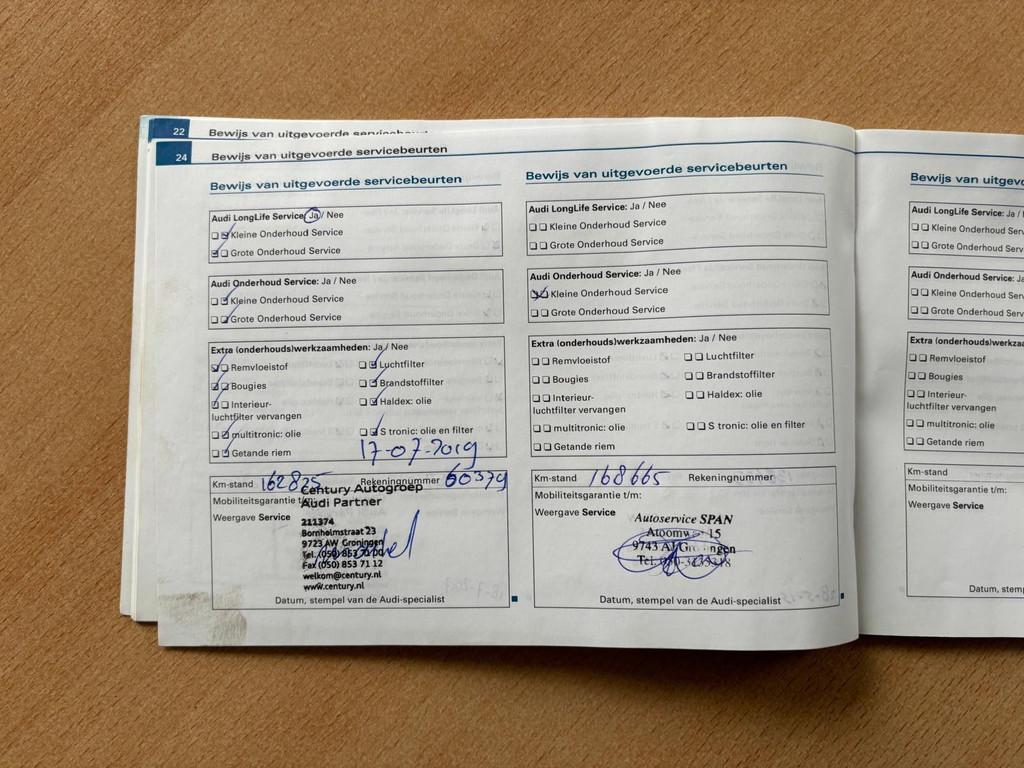 22 Bewijs van uitgevoerde
24 Bewijs van uitgevoerde servicebeurten
Bewijs van uitgevoerde servicebeurten
Audi LongLife Service: Ja / Nee
Kleine Onderhoud Service
Grote Onderhoud Service
Audi Onderhoud Service: Ja / Nee
Kleine Onderhoud Service
Grote Onderhoud Service
Extra (onderhouds)werkzaamheden: Ja / Nee
Remvloeistof Luchtfilter
Bougies Brandstoffilter
Interieur- Haldex: olie
luchtfilter vervangen
multitronic: olie S tronic: olie en filter
Getande riem 17-07-2019
Km-stand 162825 Rekeningnummer 60379
Mobiliteitsgarantie t/m:
Weergave Service
Century Autogroep
Audi Partner
211374
Bornholmstraat 23
9723 AW Groningen
Tel. (050) 853 70 00
Fax (050) 853 71 12
welkom@century.nl
www.century.nl
Datum, stempel van de Audi-specialist
Bewijs van uitgevoerde servicebeurten
Audi LongLife Service: Ja / Nee
Kleine Onderhoud Service
Grote Onderhoud Service
Audi Onderhoud Service: Ja / Nee
Kleine Onderhoud Service
Grote Onderhoud Service
Extra (onderhouds)werkzaamheden: Ja / Nee
Remvloeistof Luchtfilter
Bougies Brandstoffilter
Interieur- Haldex: olie
luchtfilter vervangen
multitronic: olie S tronic: olie en filter
Getande riem
Km-stand 168665 Rekeningnummer
Mobiliteitsgarantie t/m:
Weergave Service
Autoservice SPAN
15
9743
Tel.
Datum, stempel van de Audi-specialist
Bewijs van uitgevo
Audi LongLife Service: Ja /
Kleine Onderhoud Serv
Grote Onderhoud Serv
Audi Onderhoud Service: Ja
Kleine Onderhoud Serv
Grote Onderhoud Serv
Extra (onderhouds)werkzaa
Remvloeistof
Bougies
Interieur-
luchtfilter vervangen
multitronic: olie
Getande riem
Km-stand
Mobiliteitsgarantie t/m:
Weergave Service
Datum, stem